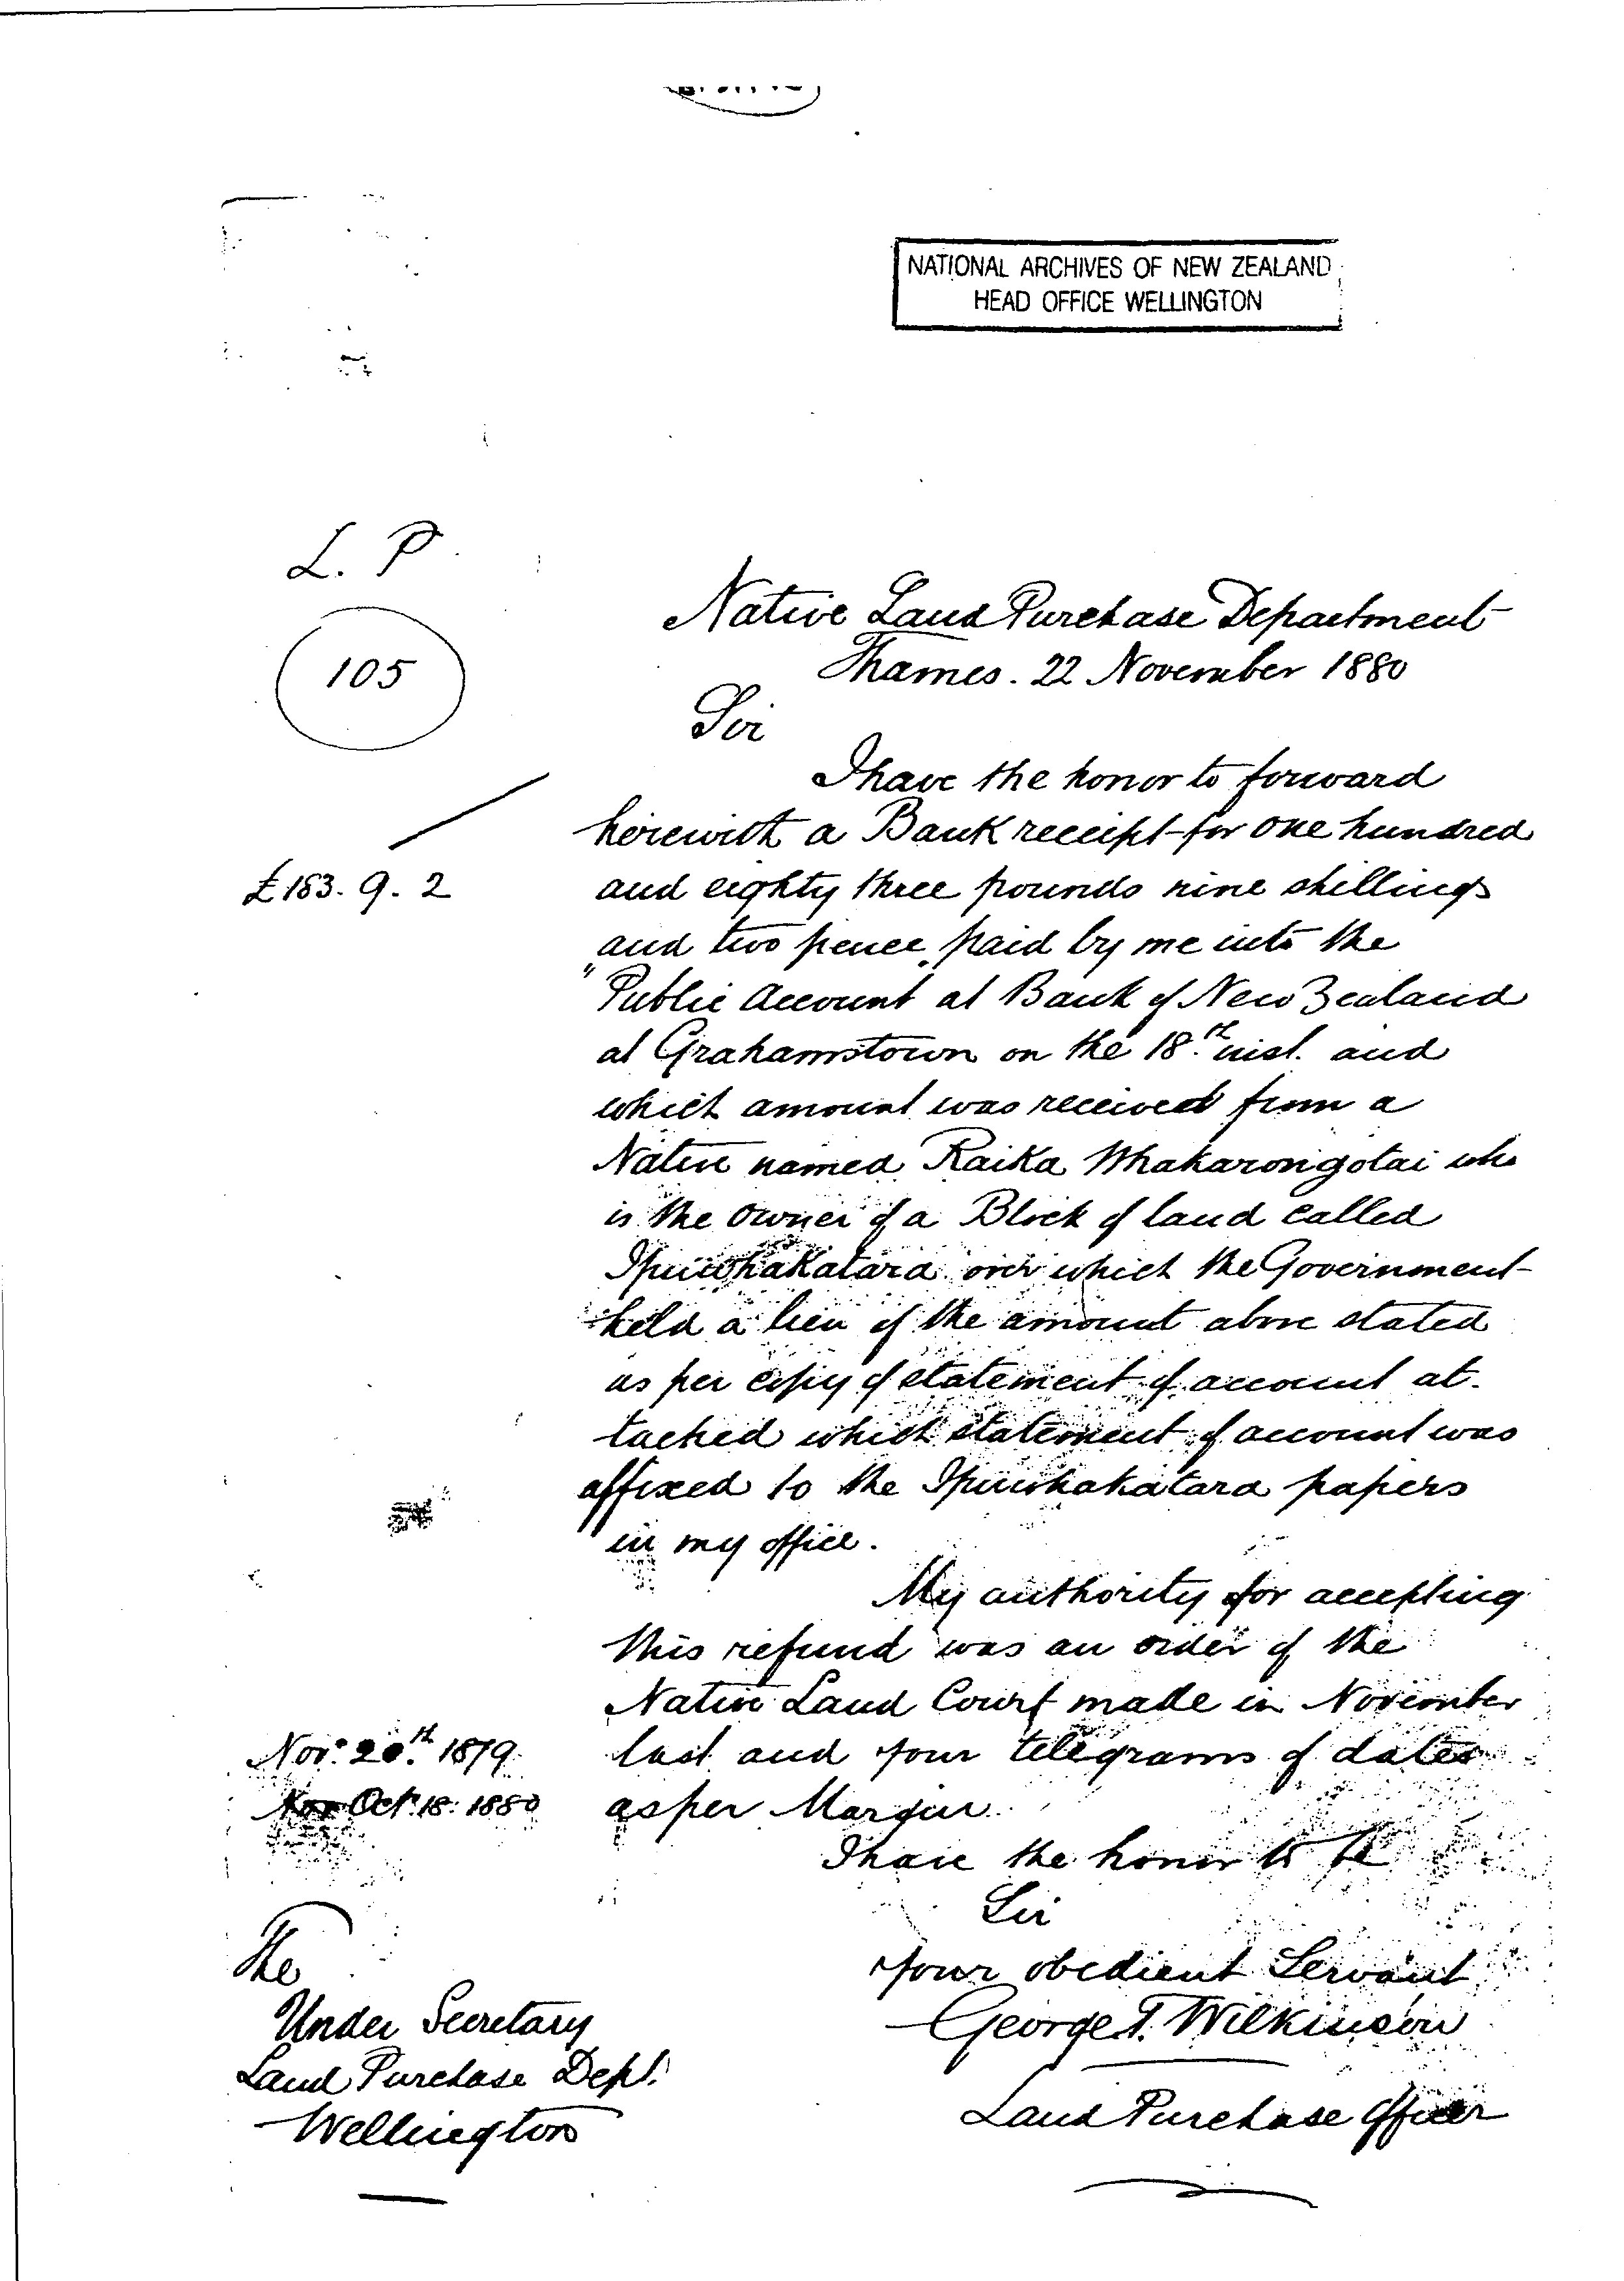 NATIONAL ARCHIVES OF NEW ZEALAND
HEAD OFFICE WELLINGTON
L. P
105
Native Land Purchase Department
Thames. 22 November 1880
Sir
I have the honor to forward
herewith a Bank receipt for one hundred
£183. 9. 2
and eighty three pounds nine shillings
and two pence paid by me into the
"Public Account at Bank of New Zealand
at Grahamstown on the 18.th inst. and
which amount was received from a
Native named Raika Whakarongotai who
is the owner of a Block of land called
Ipuwhakatara over which the Government
held a lien of the amount above stated
as per copy of statement of account at-
tached which statement of account was
affixed to the Ipuwhakatara papers
in my office.
My authority for accepting
this refund was an order of the
Native Land Court made in November
Nov. 20.th 1879
last and your telegrams of dates
Oct. 18. 1880
as per Margin.
I have the honor to be
Sir
Your obedient Servant
George T. Wilkinson
Land Purchase Officer
The
Under Secretary
Land Purchase Dept.
Wellington